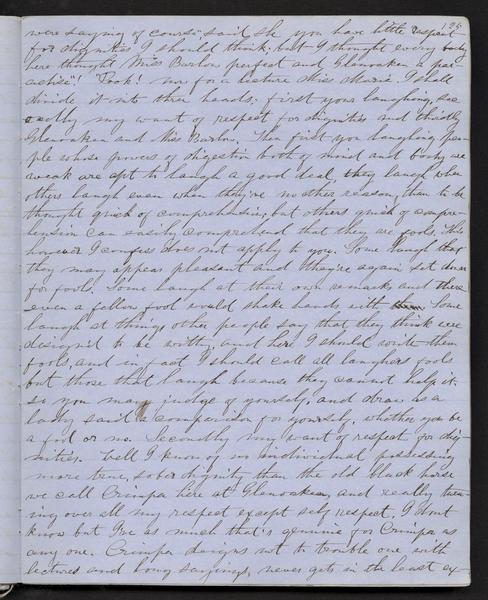 125
were saying of course" said she "you have little respect
for dignities I should think; but I thought every body
here thought Miss Barlow perfect and Glenoaken a par
adise"! "Look! now for a lecture Miss Marie. I shall
divide it into three heads; first your laughing, sec
ondly my want of respect for dignities and thirdly
Glenoaken and Miss Barlow. Then first your laughing peo
ple whose powers of digestion both of mind and body are
weak are apt to laugh a good deal, they laugh when
others laugh even when they've no other reason than to be
thought quick of comprehension; but others quick of compre-
hension can easily comprehend that they are fools. This
however I confess does not apply to you. Some laugh that
they may appear pleasant and they're again set down
for fools. Some laugh at their own remarks and there
even a fellow fool would shake hands with them. Some
laugh at things other people say that they think were
designed to be witty, and here I should write them
fools, and in fact I should call all laughers fools
but those that laugh because they cannot help it.
so you may judge of yourself, and draw as a
lady said a comparison for yourself, whether you be
a fool or no. Secondly my want of respect for dig-
nities. Well I know of no individual possessing
more true, sober dignity than the old black horse
we call Crimpa here at Glenoaken, and really turn-
ing over all my respect except self respect, I dont
know but I've as much that's genuine for Crimpa as
any one. Crimpa deigns not to trouble one with
lectures and long sayings, never gets in the least ex-